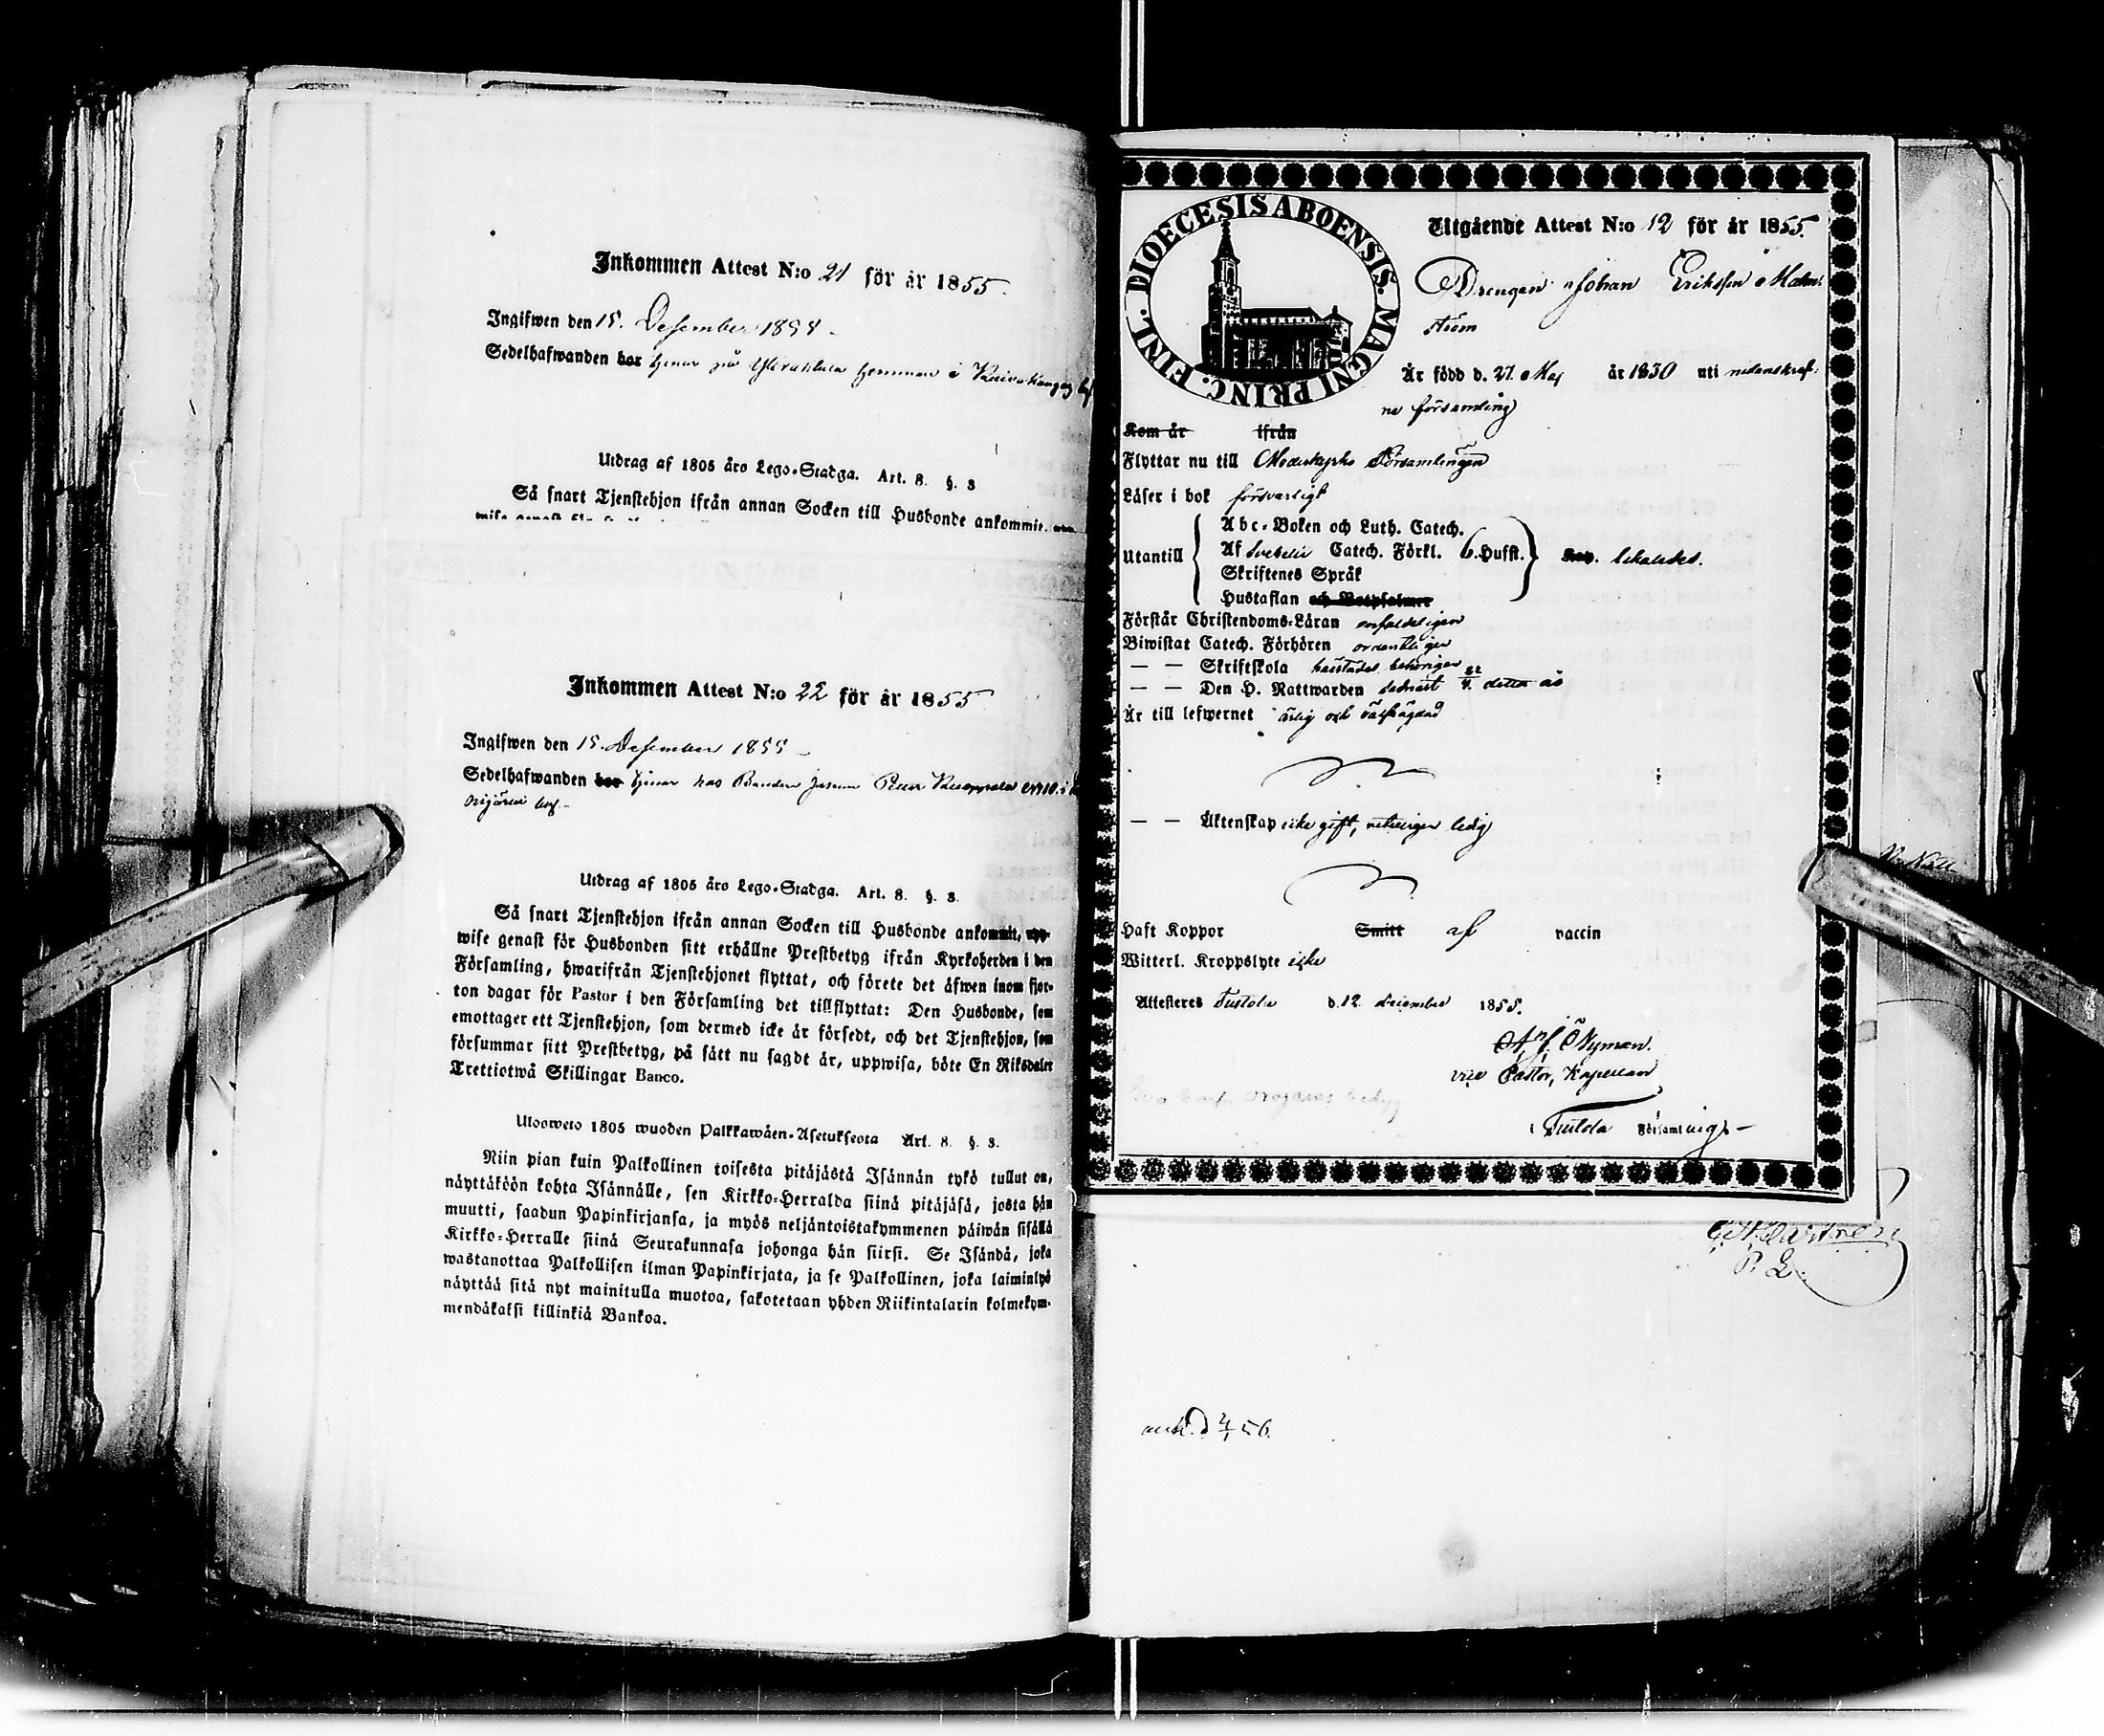 Inkommen Attest N:o 21 för år 1855.
Ingifwen den 15. December 1855
Sedelhafwanden har tjenar på hemman i
Utdrag af 1805 års Lego-Stadga. Art. 8. §. 3
Så snart Tjenstehjon ifrån annan Socken till Husbonde ankommit,
Inkommen Attest N:o 22 för år 1855
Ingifwen den 15. December 1855
Sedelhafwanden har tjenar hos Bonden
Utdrag af 1805 års Lego-Stadga. Art. 8. §. 3.
Så snart Tjenstehjon ifrån annan Socken till Husbonde ankommit, upp-
wise genast för Husbonden sitt erhållne Prestbetyg ifrån Kyrkoherden i den
Församling, hwarifrån Tjenstehjonet flyttat, och förete det äfwen inom fjor-
ton dagar för Pastor i den Församling det tillflyttat: Den Husbonde, som
emottager ett Tjenstehjon, som dermed icke är försedt, och det Tjenstehjon, som
försummar sitt Prestbetyg, på sätt nu sagdt är, uppwisa, böte En Riksdaler
Trettiotwå Skillingar Banco.
Uloosweto 1805 wuoden Palkkawäen-Asetuksesta Art. 8. §. 3.
Niin pian kuin Palkollinen toisesta pitäjästä Isännän tykö tullut on,
näyttäköön kohta Isännälle, sen Kirkko-Herralda siinä pitäjäsä, josta hän
muutti, saadun Papinkirjansa, ja myös neljäntoistakymmenen päiwän sisällä
Kirkko-Herralle siinä Seurakunnasa johonga hän siirsi. Se Isändä, joka
wastanottaa Palkollisen ilman Papinkirjata, ja se Palkollinen, joka laiminlyö
näyttää sitä nyt mainitulla muotoa, sakotetaan yhden Riikintalarin kolmekym-
mendäkaksi killinkiä Bankoa.
DIOECESIS ABOENSIS. MAGNI PRINC. FINL.
Utgående Attest N:o 12 för år 1855.
Drengen Johan Eriksson Malm-
ström
Är född d. 27. Maj år 1830 uti nedanskref-
ne församling
Kom år ifrån
Flyttar nu till Moderkyrko Församlingen
Läser i bok försvarligt
Utantill
Abc-Boken och Luth. Catech.
Af Svebelii Catech. Förkl. 6. Hufst.
Skriftenes Språk
Hustaflan och Botpsalmer
Förstår Christendoms-Läran enfaldeligen
Biwistat Catech. Förhören ordentligen
— — Skriftskola behörigen
— — Den H. Nattwarden sednast 22/4. detta år
Är till lefwernet ärlig och välfrägdad
— — Äktenskap icke gift, ledig
Haft Koppor Smitt af vaccin
Witterl. Kroppslyte icke
Attesteres Tustola d. 12 december 1855.
Nyman.
vice Pastor, Kapellan
i Tustola Församling
P. L.
ank. d 2/1 56.